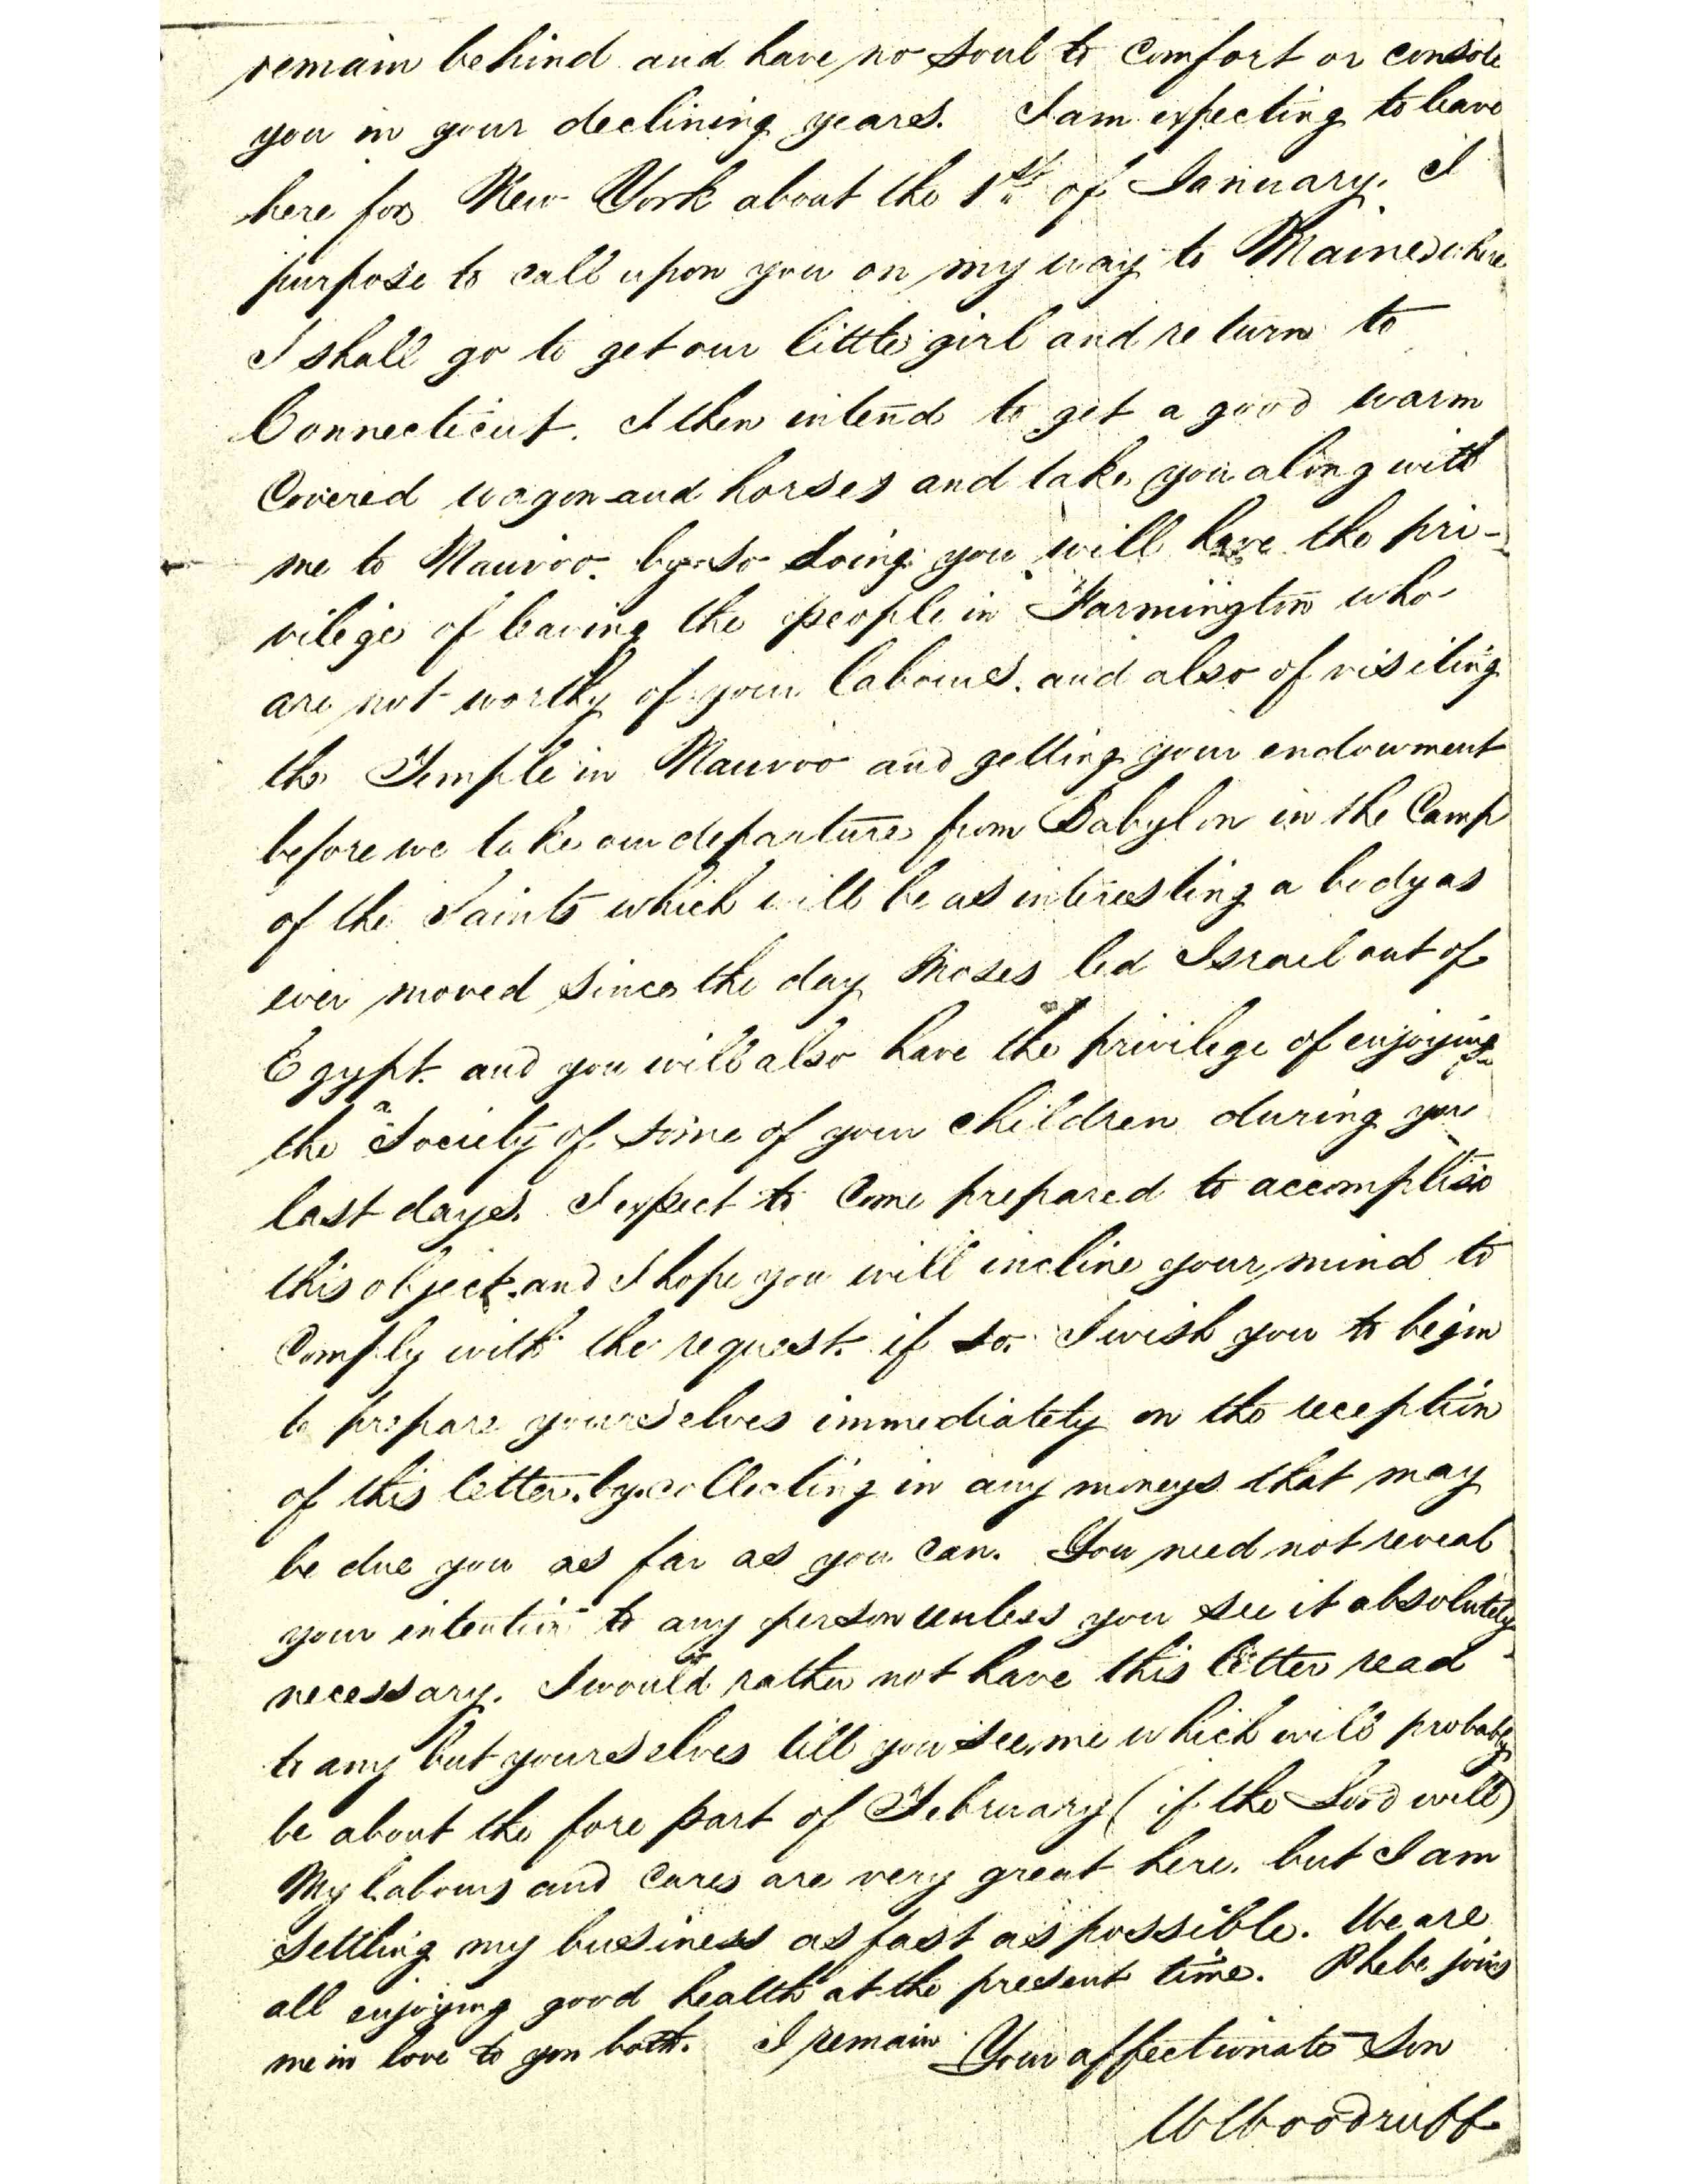 remain behind and have no soul to comfort or console
you in your declining years. I am expecting to leave
here for New York about the 1st of January. I
purpose to call upon you on my way to Maine where
I shall go to get our little girl and return to
Connecticut. I then intend to get a good warm
Covered wagon and horses and take you along with
me to Nauvoo. by so doing you will have the pri-
vilege of leaving the people in Farmington who
are not worthy of your labours. and also of visiting
the Temple in Nauvoo and getting your endowment
before we take our departure from Babylon in the Camp
of the Saints which will be as interesting a body as
ever moved since the day Moses led Israel out of
Egypt. and you will also have the privilege of enjoying
the Society of some of your children during your
last days. I expect to Come prepared to accomplish
this object. and I hope you will incline your mind to
Comply with the request. if so. I wish you to begin
to prepare yourselves immediately on the reception
of this letter. by collecting in any moneys that may
be due you as far as you Can. You need not reveal
your intention to any person unless you see it absolutely
necessary. I would rather not have this letter read
to any but yourselves till you see me which will probably
be about the fore part of February (if the Lord will)
My labours and Cares are very great here. but I am
settling my business as fast as possible. We are
all enjoying good health at the present time. Phebe joins
me in love to you both. I remain Your affectionate Son
W Woodruff